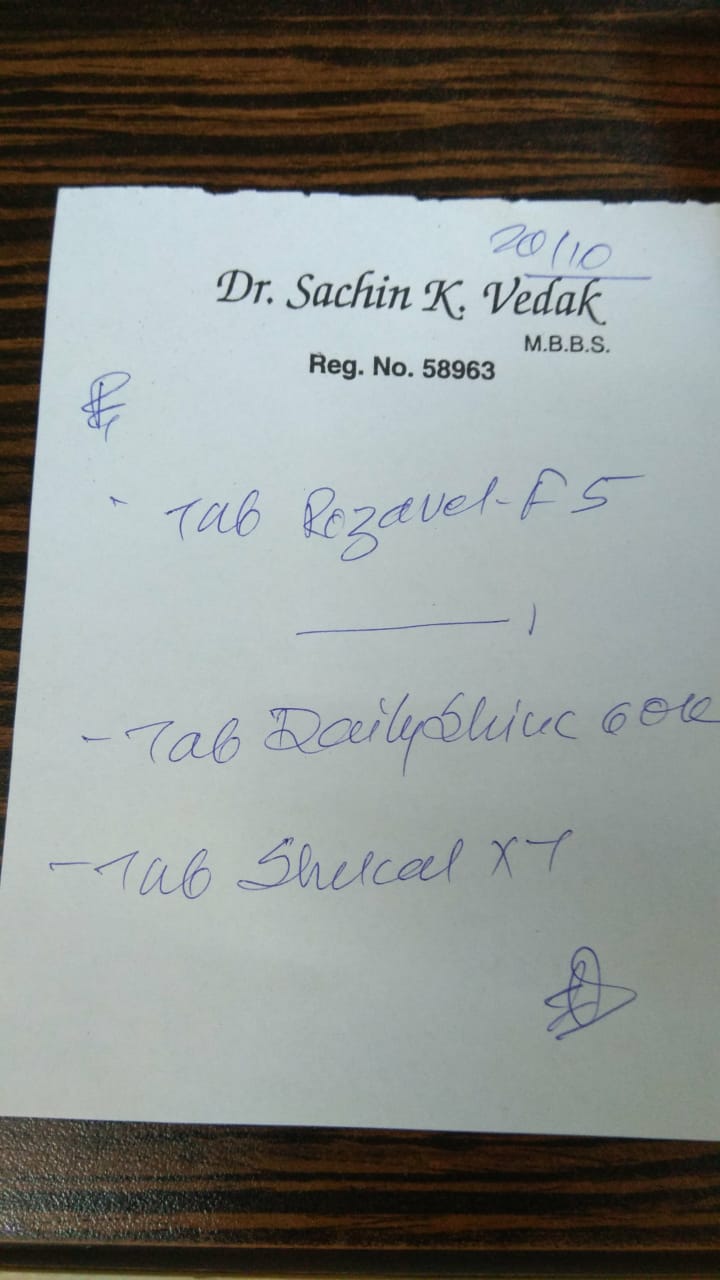 20/10
Dr. Sachin K. Vedak
M.B.B.S.
Reg. No. 58963
Rx
Tab Rozavel-F 5
——— 1
- Tab DailyShine 60K
- Tab Shelcal XT